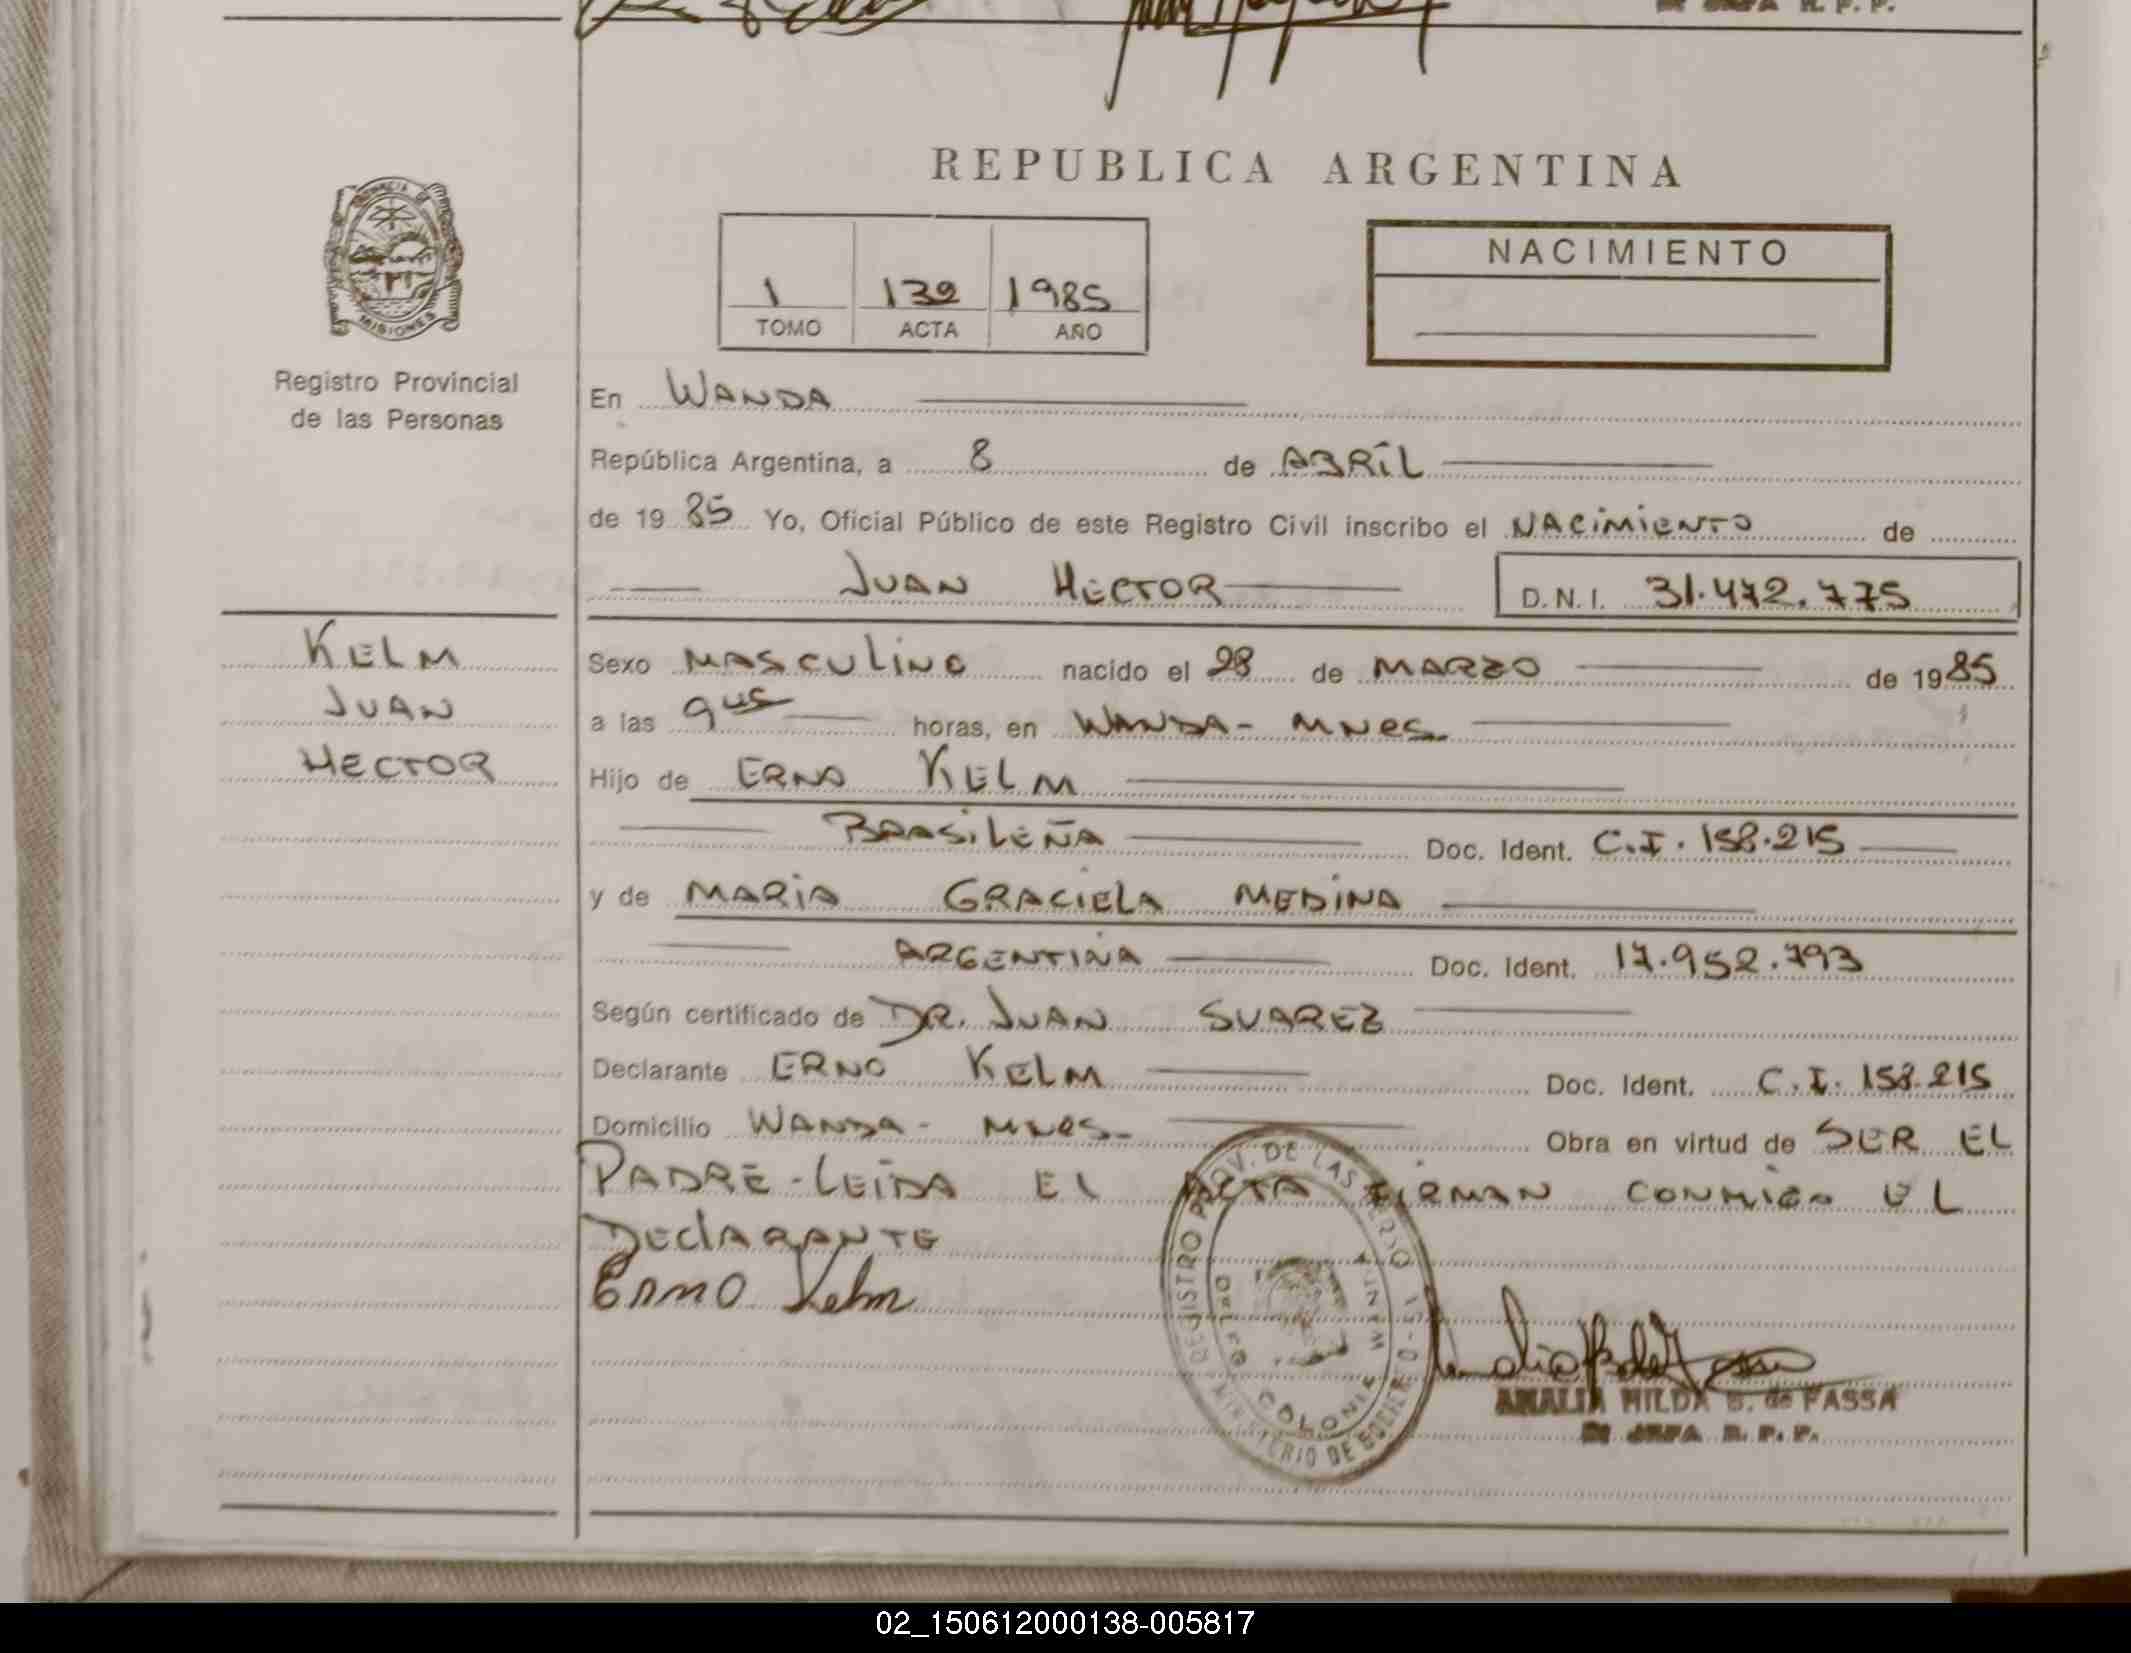 REPUBLICA ARGENTINA
1 139 1985
TOMO ACTA AÑO
NACIMIENTO
MISIONES
Registro Provincial
de las Personas
En WANDA
República Argentina, a 8 de ABRIL
de 1985 Yo, Oficial Público de este Registro Civil inscribo el NACIMIENTO de
JUAN HECTOR D.N.I. 31.472.775
KELM
JUAN
HECTOR
Sexo MASCULINO nacido el 28 de MARZO de 1985
a las 9 horas, en WANDA- MNES.
Hijo de ERNO KELM
BRASILEÑA Doc. Ident. C.I. 158.215
y de MARIA GRACIELA MEDINA
ARGENTINA Doc. Ident. 17.952.793
Según certificado de DR. JUAN SUAREZ
Declarante ERNO KELM Doc. Ident. C.I. 158.215
Domicilio WANDA- MNES- Obra en virtud de SER EL
PADRE-LEIDA EL ACTA FIRMAN CONMIGO EL
DECLARANTE
Erno Kelm
COLONIA WANDA
AMALIA HILDA B. de FASSA
JEFA R. P. P.
02_150612000138-005817